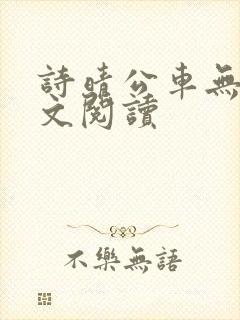 詩晴公車無
文閱讀
不樂無語